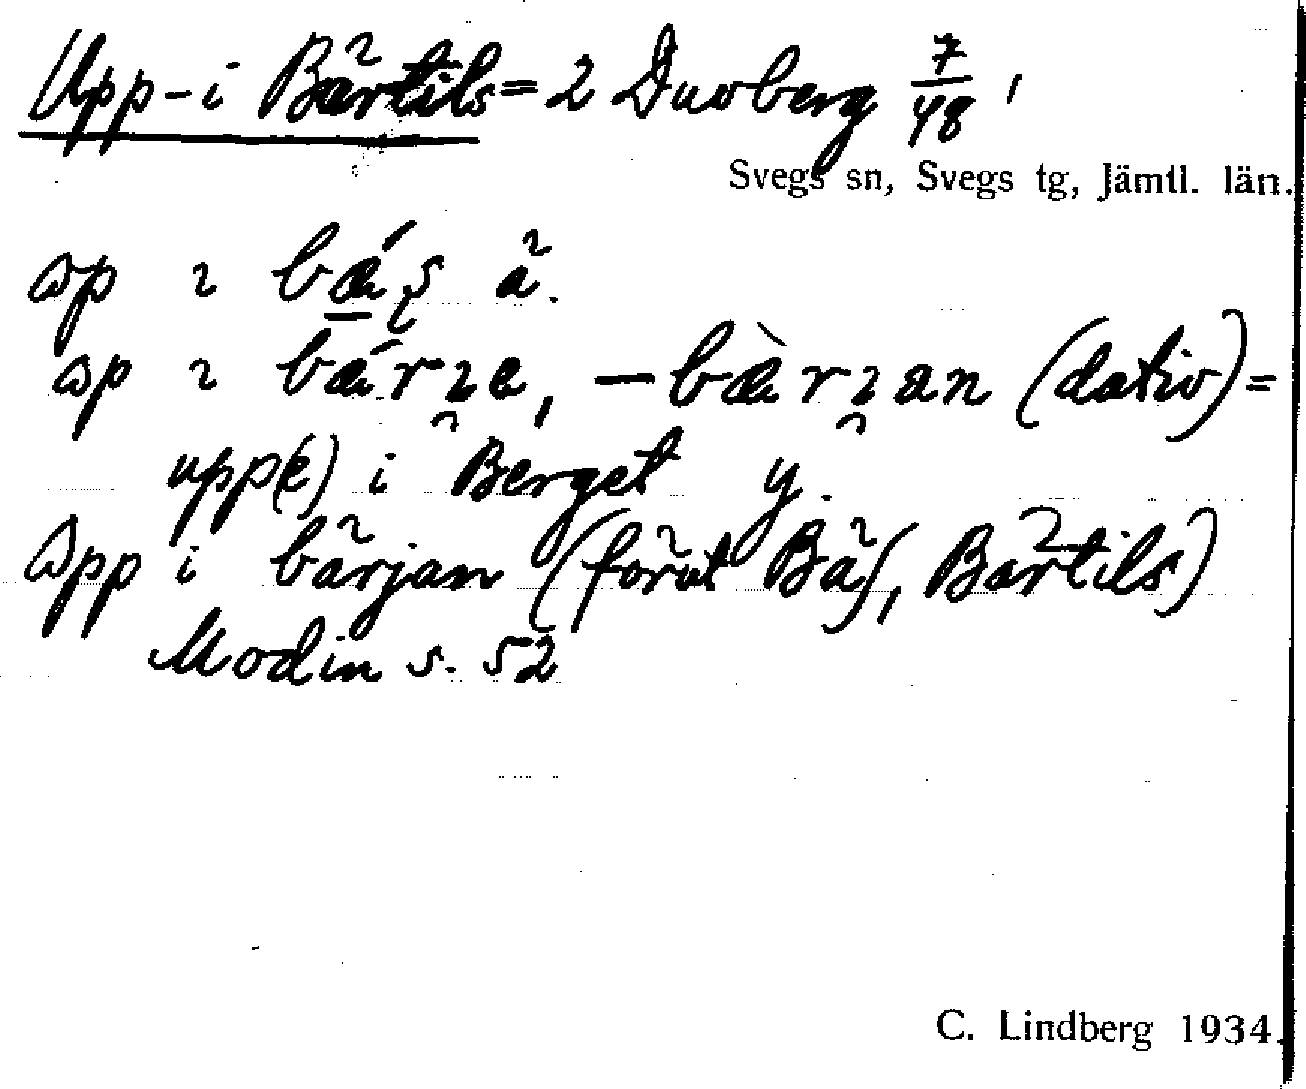 Upp-i Bärtils = 2 Duvberg 7/48,
Svegs sn, Svegs tg, Jämtl. län.
ɩ bǽʂ ä.
ɩ bǽrɩe, – bæ̀rɩan (dativ) =
upp(e) i Berget y.
Opp i bärjan (förut Bäs, Bärtils)
Modin s. 52
C. Lindberg 1934.